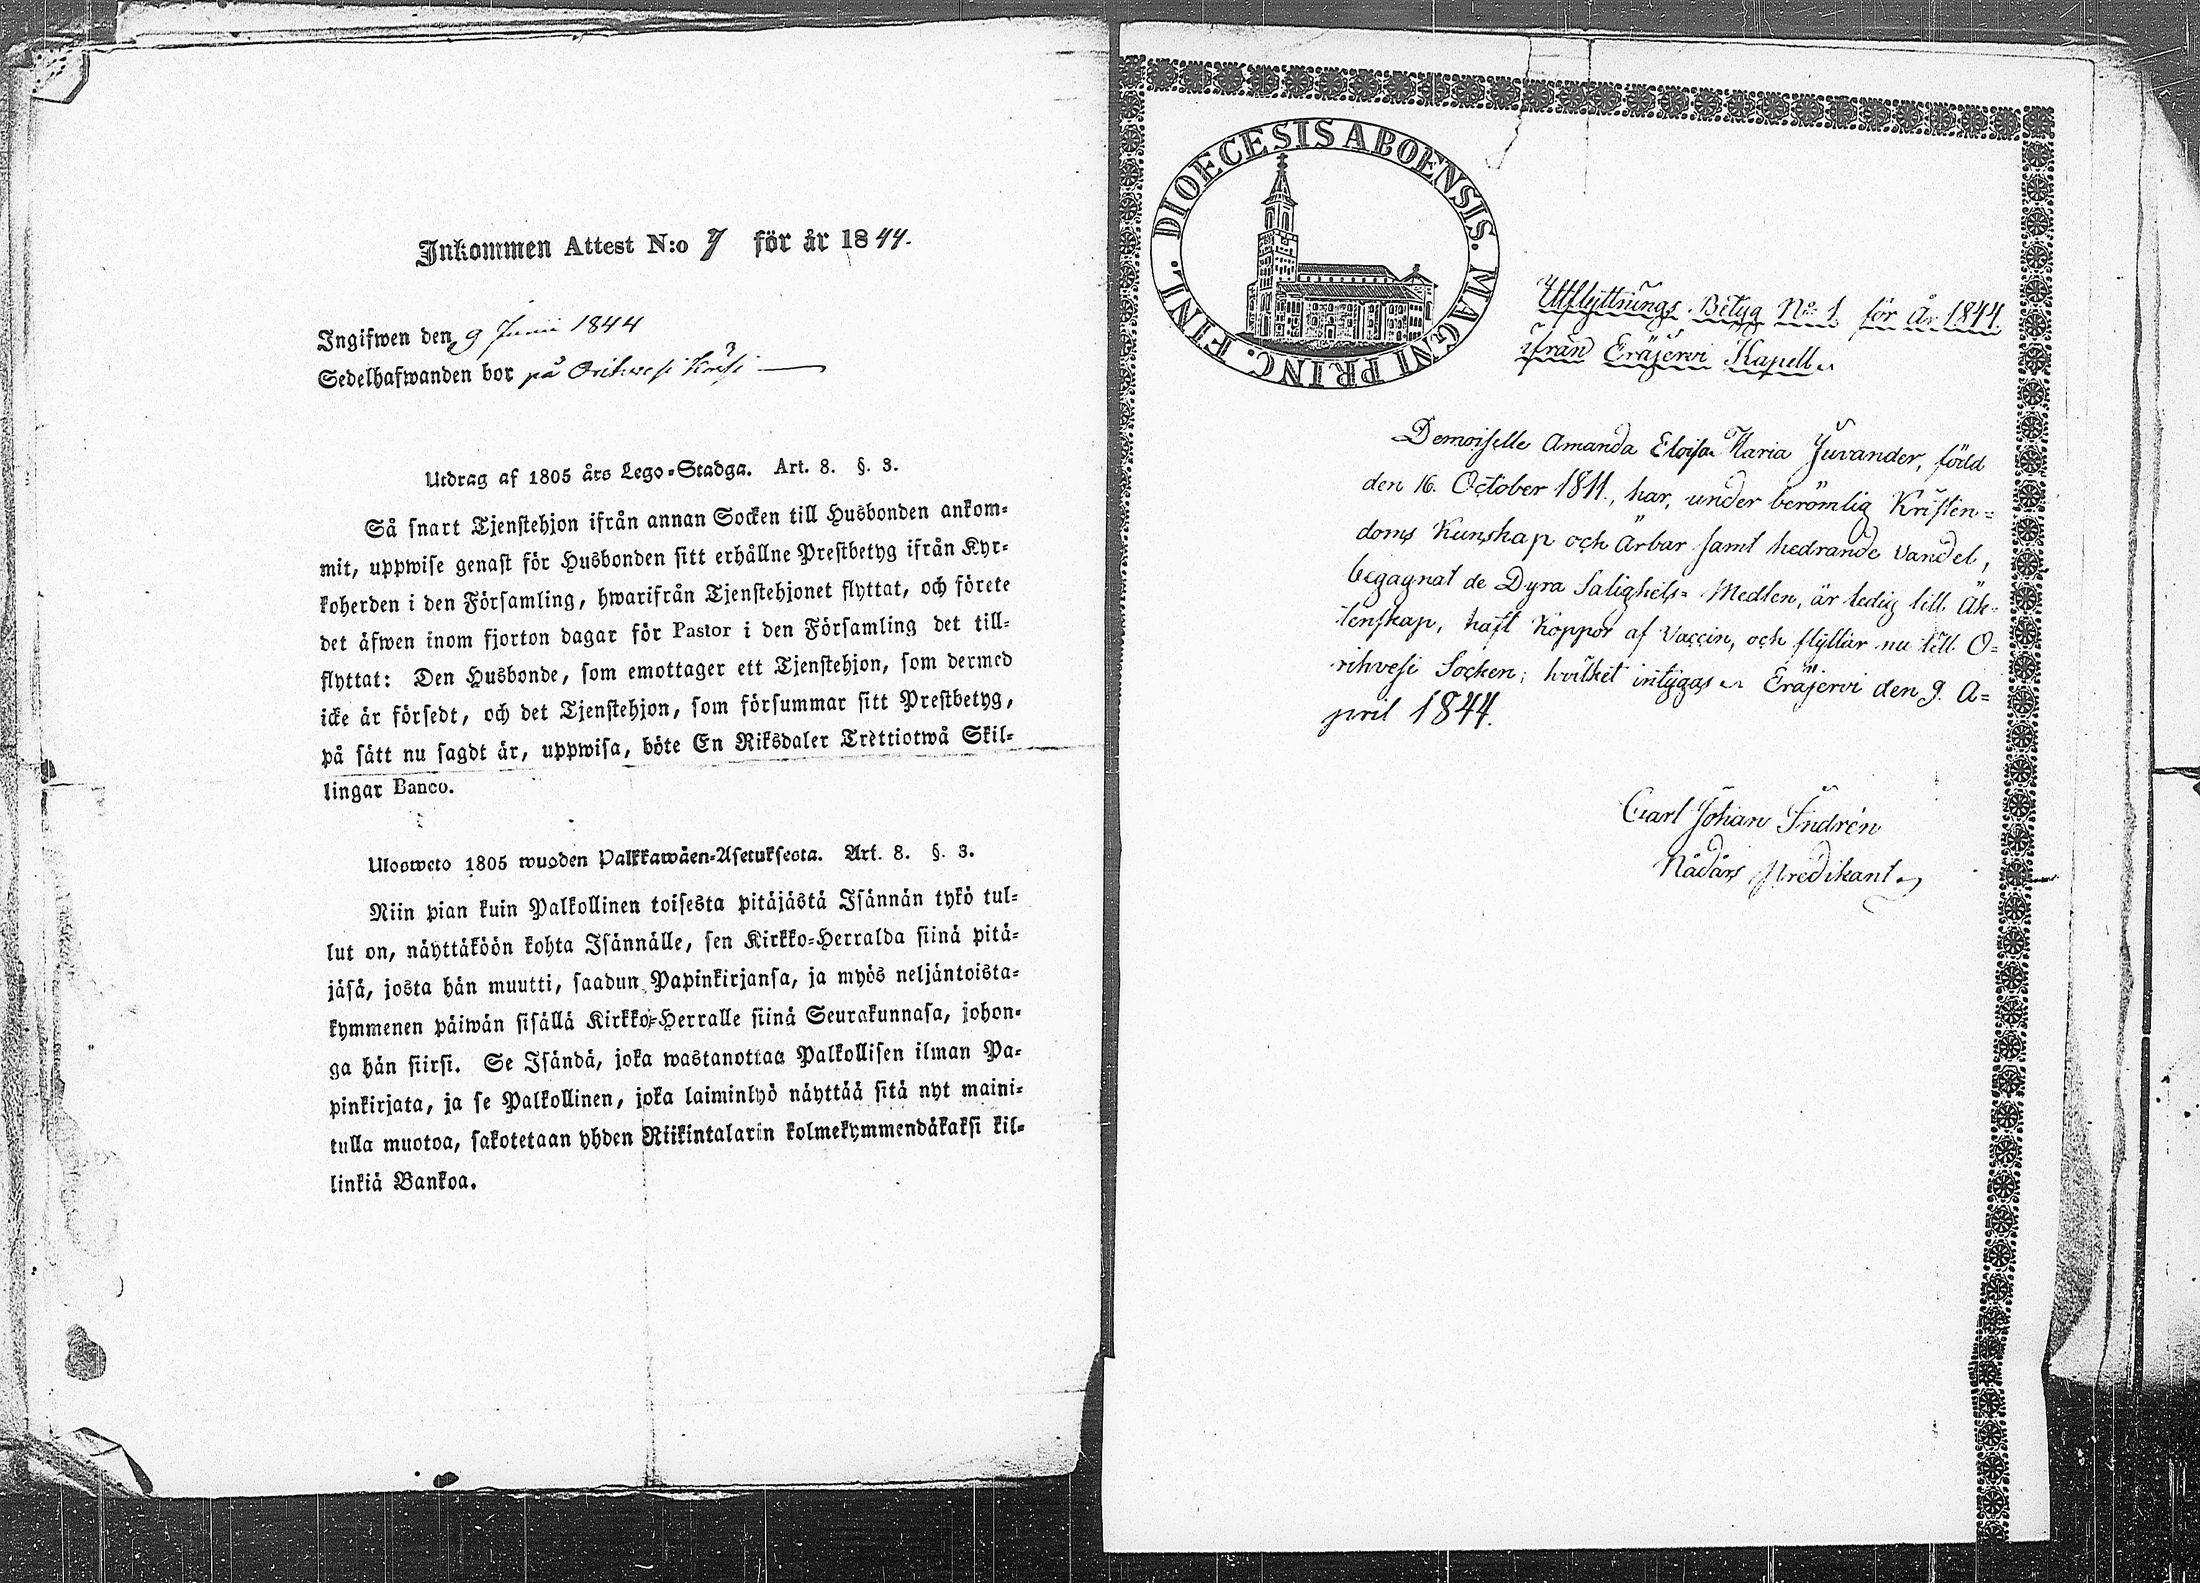 Inkommen Attest N:o 7 för år 1844.
Ingifwen den 9 Junii 1844
Sedelhafwanden bor på Orihvesi
Utdrag af 1805 års Lego-Stadga. Art. 8. §. 3.
Så snart Tjenstehjon ifrån annan Socken till Husbonden ankom-
mit, uppwise genast för Husbonden sitt erhållne Prestbetyg ifrån Kyr-
koherden i den Församling, hwarifrån Tjenstehjonet flyttat, och förete
det äfwen inom fjorton dagar för Pastor i den Församling det till-
flyttat: Den Husbonde, som emottager ett Tjenstehjon, som dermed
icke är försedt, och det Tjenstehjon, som försummar sitt Prestbetyg,
på sätt nu sagdt är, uppwisa, böte En Riksdaler Trettiotwå Skil-
lingar Banco.
Ulosweto 1805 wuoden Palkkawäen-Asetuksesta. Art. 8. §. 3.
Niin pian kuin Palkollinen toisesta pitäjästä Isännän tykö tul-
lut on, näyttäköön kohta Isännälle, sen Kirkko-Herralda siinä pitä-
jäsä, josta hän muutti, saadun Papinkirjansa, ja myös neljäntoista-
kymmenen päiwän sisällä Kirkko-Herralle siinä Seurakunnasa, johon-
ga hän siirsi. Se Isändä, joka wastanottaa Palkollisen ilman Pa-
pinkirjata, ja se Palkollinen, joka laiminlyö näyttää sitä nyt maini-
tulla muotoa, sakotetaan yhden Riikintalarin kolmekymmendäkaksi kil-
linkiä Bankoa.
DIOECESIS ABOENSIS. MAGNI PRINC. FINL.
Utflyttnings-Betyg No 1 för År 1844.
ifrån Eräjervi Kapell.
Demoiselle Amanda Eloisa Maria Juvander, född
den 16. October 1811., har, under berömlig Kristen=
doms Kunskap och Ärbar samt hedrande Vandel,
begagnat de Dyra Salighets= Medlen, är ledig till Äk=
tenskap, haft Koppor af Vaccin, och flyttar nu till O=
rihvesi Socken; hvilket intygas Eräjervi den 9. A=
pril 1844.
Carl Johan Indrén
Nådårs Predikant